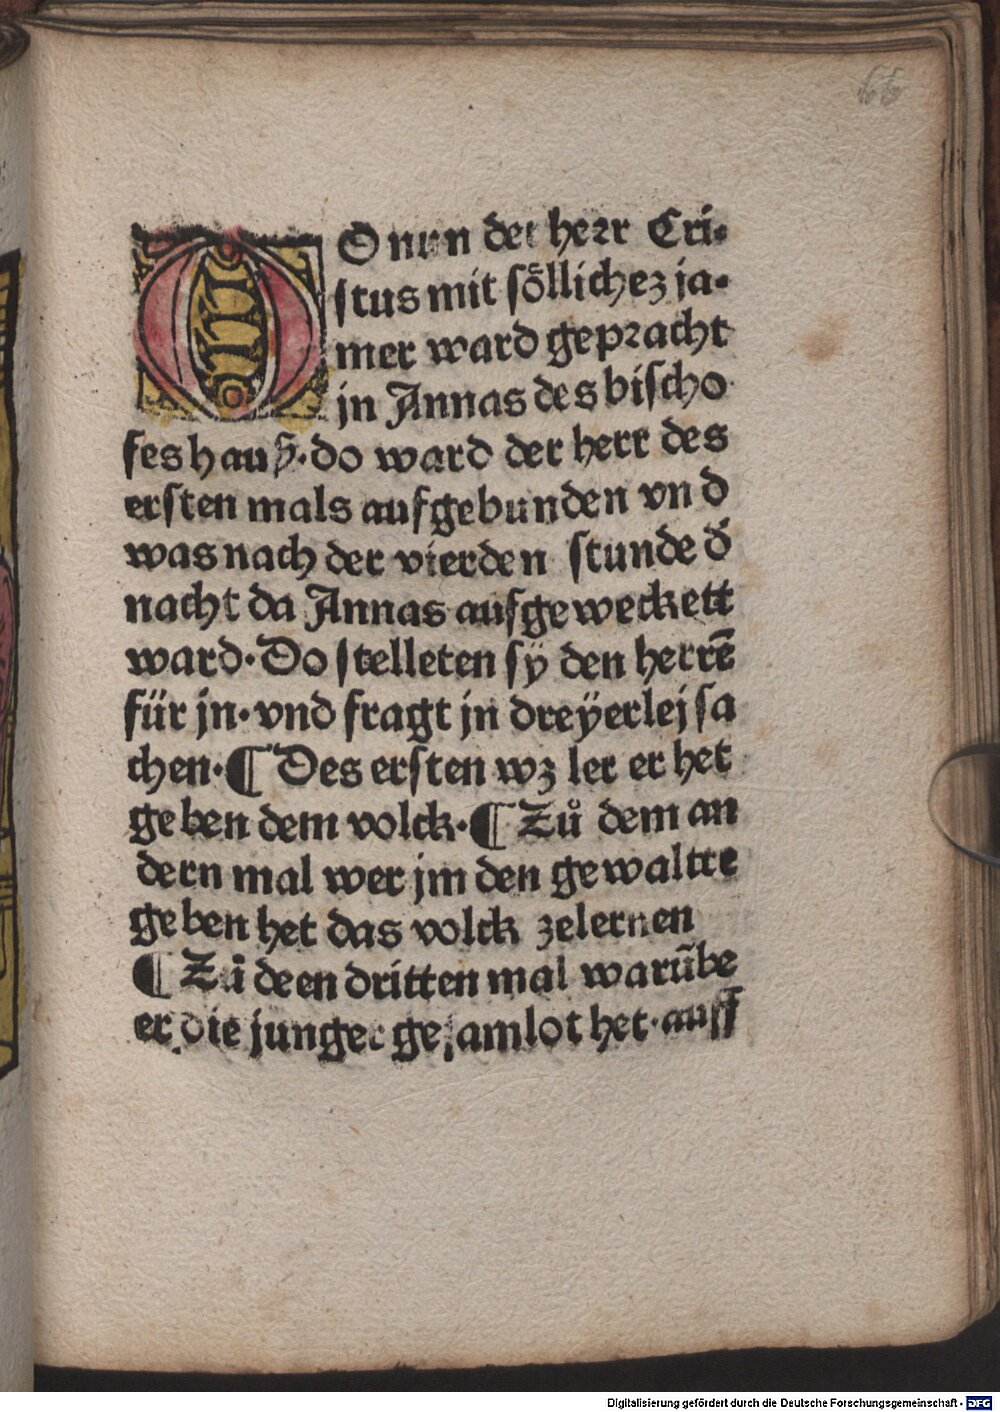 66
DO nun der herr Cri-
stus mit soͤllichez ja-
mer ward gepracht
jn Annas des bischo
fes hauß. do ward der herr des
ersten mals aufgebunden vnd
was nach der vierden stunde đ
nacht da Annas aufgeweckett
ward. Do stelleten sÿ den herrē
für jn. vnd fragt jn dreÿerlej sa
chen. ¶ Des ersten wz ler er het
geben dem volck. ¶ Zů dem an
dern mal wer jm den gewaltte
geben het das volck zelernen
¶ Zů deen dritten mal warūbe
er die junger gesamlot het. auff
Digitalisierung gefördert durch die Deutsche Forschungsgemeinschaft - DFG